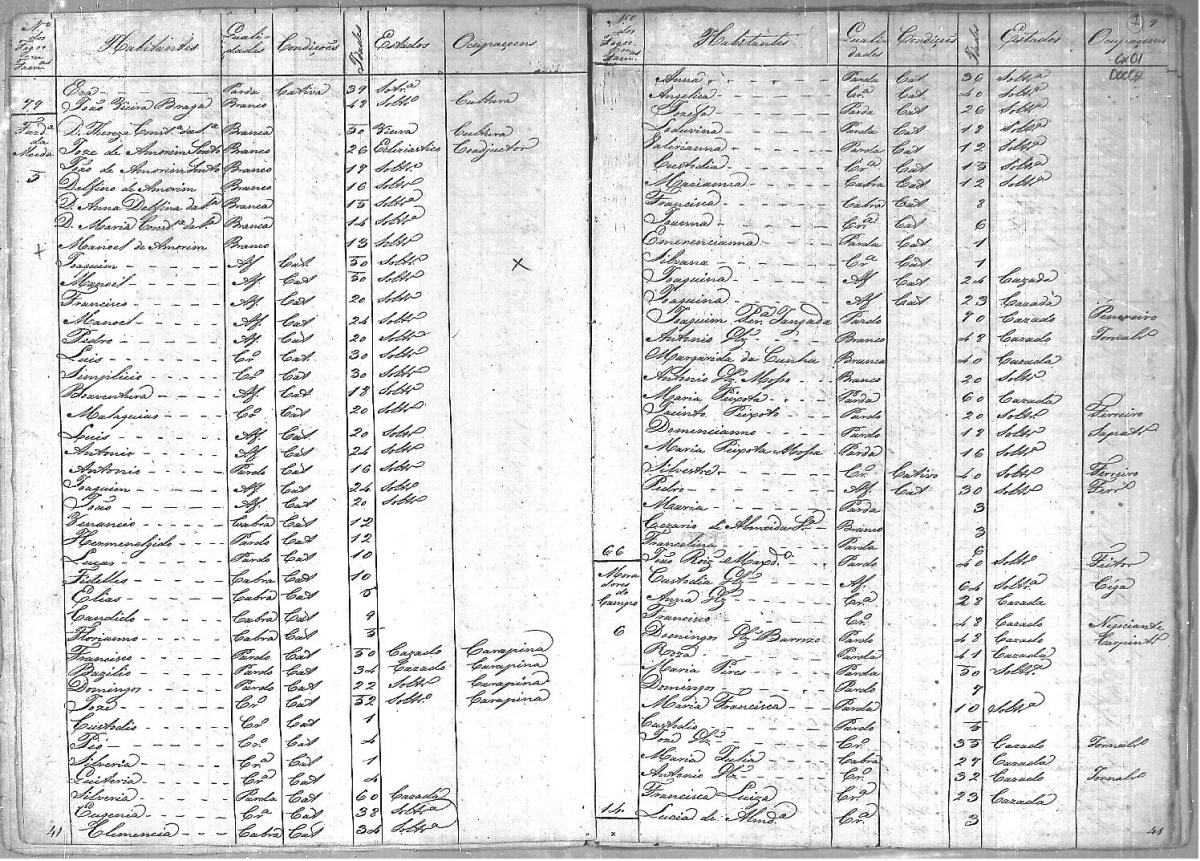 Nº dos Fogos Habitantes Qualidades Condições Idades Estados Ocupaçoens
Eva Parda Cativa 39 Soltrª
79 João Vieira Braga Branco 48 Soltrº Cultura
Fazdª da Moeda
5
D. Thereza Constª da Sª Branca 50 Viuva Cultura
Joze de Amorim Branco 26 Ecleziastico Coadjuctor
João de Amorim Branco 19 Soltrº
Delfino de Amorim Branco 16 Soltrº
D. Anna Delfina da Sª Branca 15 Soltrª
D. Maria Constª da Sª Branca 14 Soltrª
Manoel de Amorim Branco 13 Soltrº
Joaquim Af. Cat. 50 Soltrº
Manoel Af. Cat 50 Soltrº
Francisco Af. Cat 20 Soltrº
Manoel Af. Cat 24 Soltrº
Pedro Af. Cat 20 Soltrº
Luis Crº Cat. 30 Soltrº
Simplicio Crº Cat 30 Soltrº
Boaventura Af. Cat 18 Soltrº
Malaquias Crº Cat 20 Soltrº
Luis Af. Cat. 20 Soltrº
Antonio Af. Cat 24 Soltrº
Antonio Pardo Cat 16 Soltrº
Joaquim Af. Cat 24 Soltrº
João Af. Cat 20 Soltrº
Venancio Cabra Cat 12
Hermenegido Pardo Cat 12
Lucas Pardo Cat 10
Fidelles Cabra Cat 10
Elias Cabra Cat 5
Candido Cabra Cat 9
Florianno Cabra Cat 5
Francisco Pardo Cat 50 Cazado Carapina
Bazilio Pardo Cat 34 Cazado Carapina
Domingos Pardo Cat 22 Soltrº Carapina
Joze Crº Cat 52 Soltrº Carapina
Custodio Crº Cat 1
Pio Crº Cat 4
Silveria Crª Cat 1
Quiteria Crª Cat 4
Silveria Parda Cat 60 Cazada
Eugenia Crª Cat 38 Soltrª
Clemencia Cabra Cat 34 Soltrª
41
Nº dos Fogos Habitantes Qualidades Condições Idades Estados Ocupaçoens
Cx01
Doc02
Anna Parda Cat 36 Soltrª
Angelica Crª Cat 40 Soltrª
Jozefa Parda Cat 26 Soltrª
Loduvina Parda Cat 18 Soltrª
Valerianna Parda Cat 12 Soltrª
Custodia Crª Cat 15 Soltrª
Marianna Cabra Cat 12 Soltrª
Francisca Cabra Cat 8
Joanna Crª Cat 6
Emerencianna Parda Cat 1
Silvana Crª Cat 1
Joaquina Af Cat 24 Cazada
Joaquina Af Cat 23 Cazada
Joaquim Perª Pardo 70 Cazado
Antonio Glz Branco 48 Cazado Jornalrº
Margarida da Cunha Branca 40 Cazada
Antonio Glz Mosso Branco 20 Soltrº
Maria Peixota Parda 60 Cazada
Jacinto Peixoto Pardo 20 Soltrº Ferreiro
Domencianno Pardo 18 Soltrº Sapatrº
Maria Peixota Mossa Parda 16 Soltrª
Silvestre Crº Cativo 40 Soltrº Ferreiro
Pedro Af. Cat 30 Soltrº Ferrº
Maria Parda 3
Cezario de Almeida Branco 3
Francelina Parda 6
66 João Roiz Pardo 40 Soltrº Feitor
Moradores do Campo
6
Custodia Glz Af. 64 Soltrª Cega
Anna Glz Crª 28 Cazada
Francisco Crº 48 Cazado Negociante
Domingos Glz Barrozo Pardo 48 Cazado Carpintrº
Roza Parda 41 Cazada
Maria Pires Parda 50 Soltrª
Domingos Pardo 7
Maria Francisca Parda 10 Soltrª
Custodio Pardo 5
João Glz Crº 35 Cazado Jornalrº
Maria Julia Cabra 27 Cazada
Antonio Glz Crº 32 Cazado Jornalrº
Francisca Luiza Crª 23 Cazada
14 Lucia de Almdª Crª 3
41